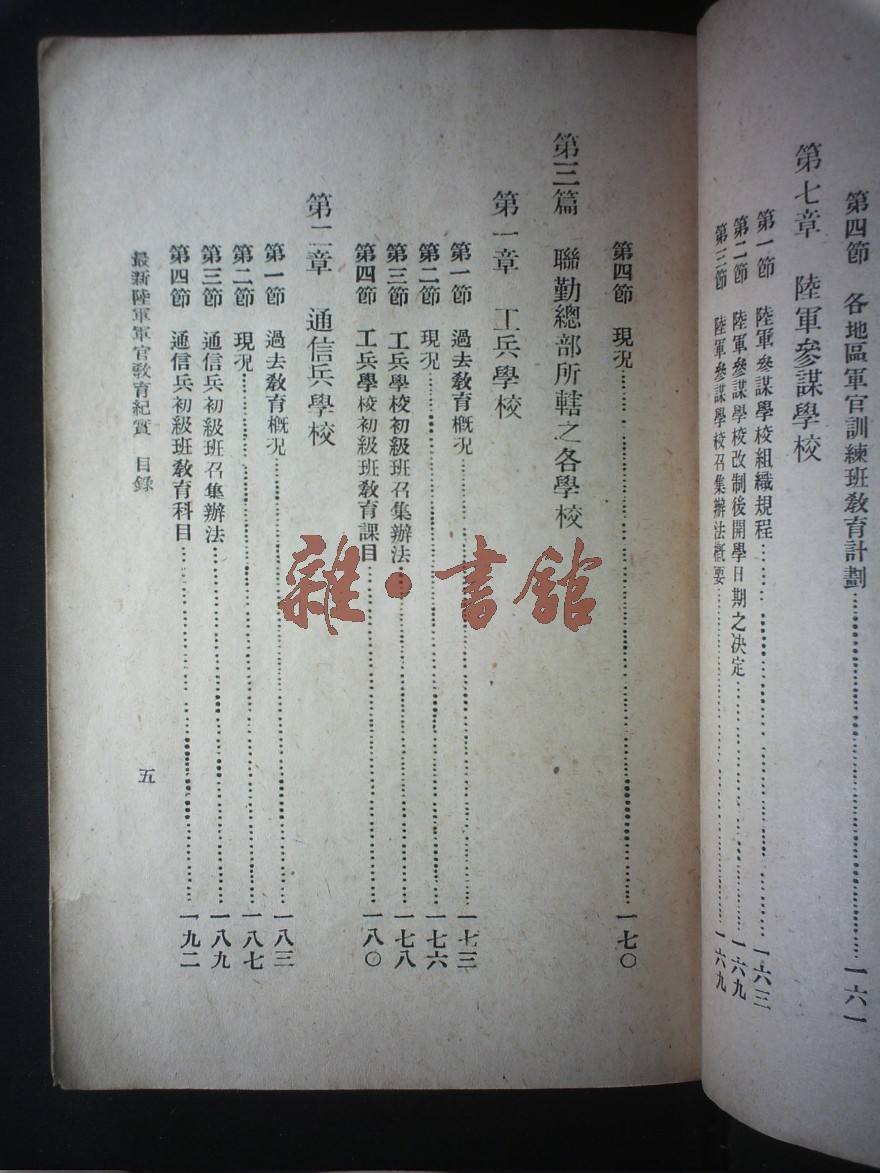 第四節　各地區軍官訓練班敎育計劃……一六一
第七章　陸軍參謀學校
第一節　陸軍參謀學校組織規程……一六三
第二節　陸軍參謀學校改制後開學日期之決定……一六九
第三節　陸軍參謀學校召集辦法概要……一六九
第四節　現況……一七〇
第三篇　聯勤總部所轄之各學校
第一章　工兵學校
第一節　過去敎育槪况……一七三
第二節　現况……一七六
第三節　工兵學校初級班召集辦法……一七八
第四節　工兵學校初級班敎育課目……一八〇
第二章　通信兵學校
第一節　過去敎育槪况……一八三
第二節　現况……一八七
第三節　通信兵初級班召集辦法……一八九
第四節　通信兵初級班敎育科目……一九二
最新陸軍軍官敎育紀實　目錄
五
雜·書館